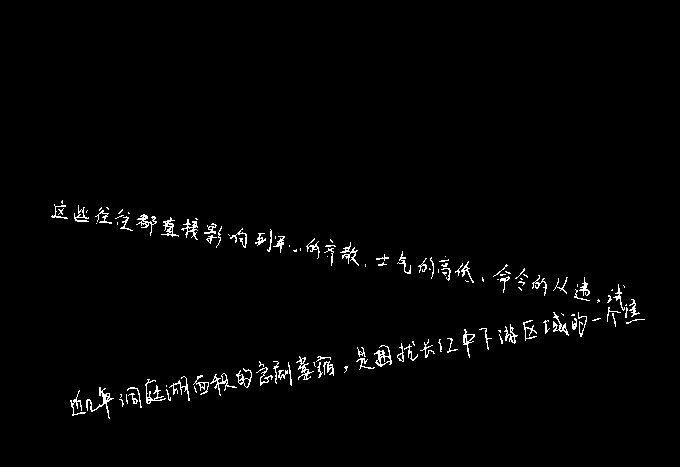 这些往往都直接影响到军心的齐散、士气的高低、命令的从违,试
近几年洞庭湖面积的急剧萎缩,是困扰长江中下游区域的一个焦